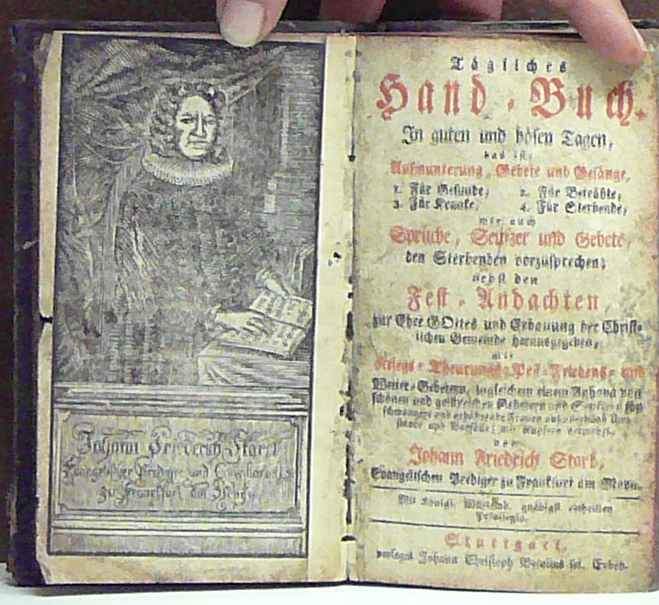 Johann Friedrich Starck
Evangelischer Prediger und
zu Franckfurt am Mayn
Tägliches
Hand-Buch.
In guten und bösen Tagen,
das ist:
Aufmunterung, Gebete und Gesänge,
1. Für Gesunde, 2. Für Betrübte,
3. Für Kranke, 4. Für Sterbende,
wie auch
Sprüche, Seufzer und Gebete,
den Sterbenden vorzusprechen;
nebst den
Fest-Andachten,
zur Ehre GOttes und Erbauung der Christ-
lichen Gemeinde herausgegeben,
Kriegs- Theurungs- Pest- Friedens- und
Wetter-Gebetern, ingleichem einem Anhang von
schönen und geistreichen
schwangere und gebährende Frauen
von
Johann Friedrich Stark,
Evangelischen Prediger zu Frankfurt am Mayn.
Mit Königl. gnädigst ertheilten
Privilegio.
Stuttgart,
verlegts Johann Christoph sel. Erben.